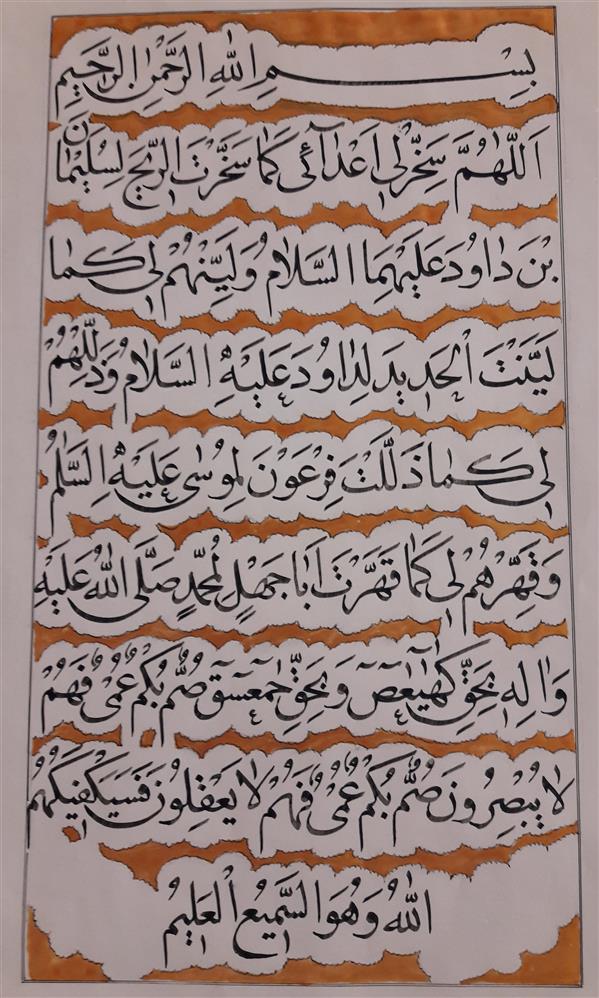 بِسْمِ اللهِ الرَّحْمٰنِ الرَّحِيْمِ
اَللّٰهُمَّ سَخِّرْلِي اَعْدَآئِي كَمَا سَخَّرْتَ الرِّيْحَ لِسُلَيْمَانَ
بْنَ دَاوُدَ عَلَيْهِمَا السَّلَامُ وَلَيِّنْهُمْ لِي كَمَا
لَيَّنْتَ الْحَدِيدَ لِدَاوُدَ عَلَيْهِ السَّلَامُ وَذَلِّلْهُمْ
لِي كَمَا ذَلَّلْتَ فِرْعَوْنَ لِمُوسٰى عَلَيْهِ السَّلٰمُ
وَقَهِّرْهُمْ لِي كَمَا قَهَّرْتَ اَبَا جَهْلٍ لِمُحَمَّدٍ صَلَّى اللهُ عَلَيْهِ
وَاٰلِهِ بِحَقِّ كٓهٰيٰعٓصٓ وَبِحَقِّ حٰمٓعٓسٓقٓ صُمٌّ بُكْمٌ عُمْيٌ فَهُمْ
لَا يُبْصِرُونَ صُمٌّ بُكْمٌ عُمْيٌ فَهُمْ لَا يَعْقِلُونَ فَسَيَكْفِيكَهُمُ
اللهُ وَهُوَ السَّمِيعُ الْعَلِيمُ